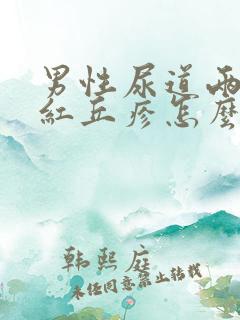 男性尿道两
紅丘疹怎麼
韩熙庭
未经同意禁止转载